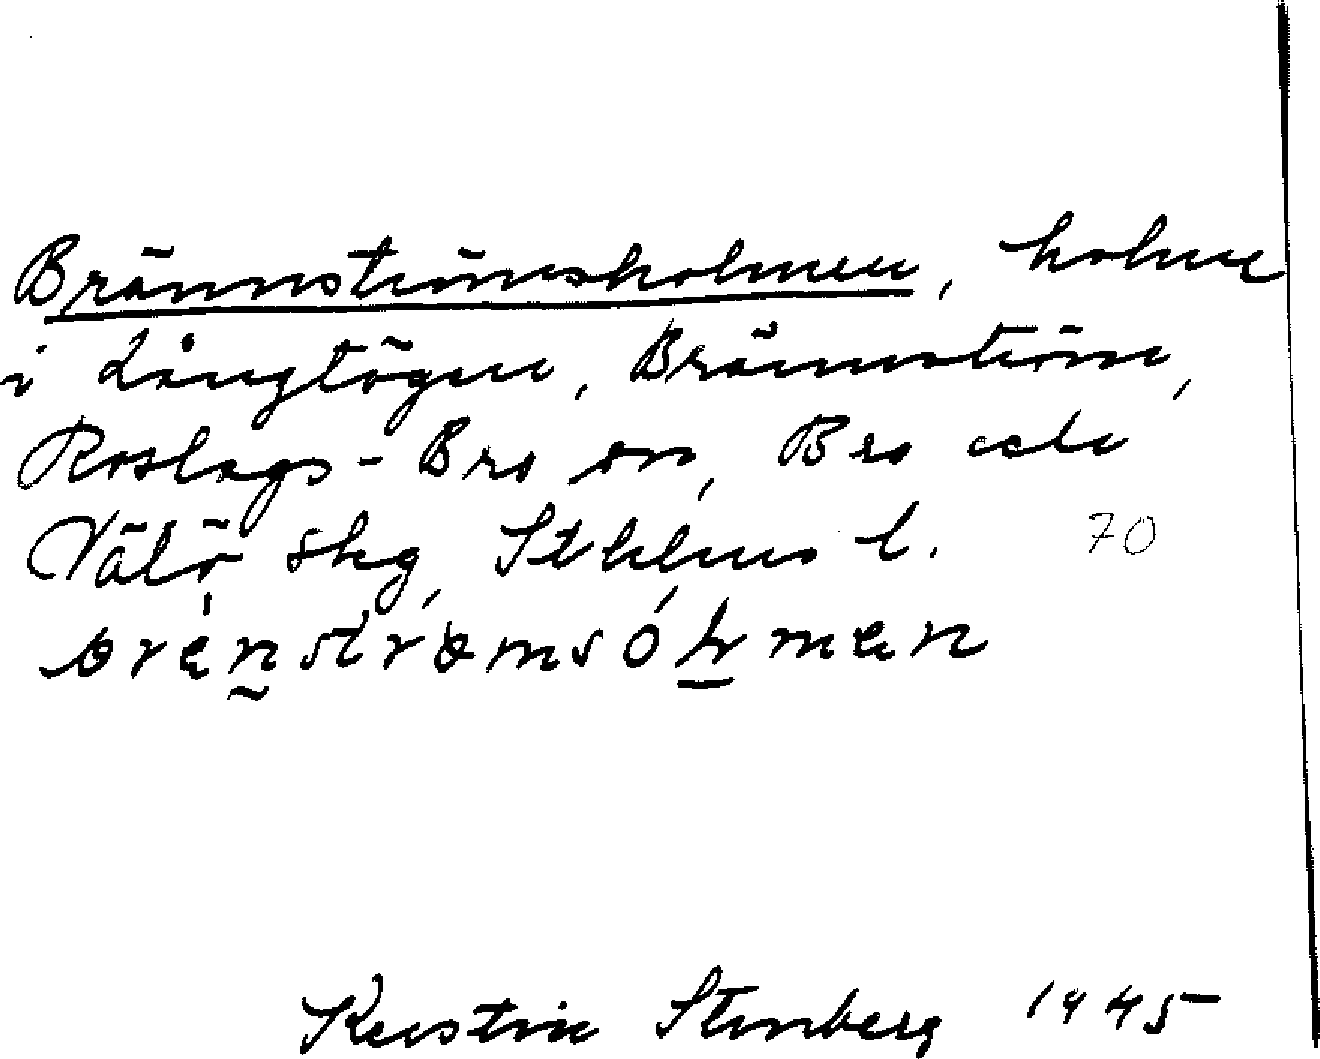 Brännströmsholmen, holme
i Långtögen, Brännström,
Roslags-Bro sn, Bro och
Vätö skg, Sthlms l. 70
Kerstin Stenberg 1945